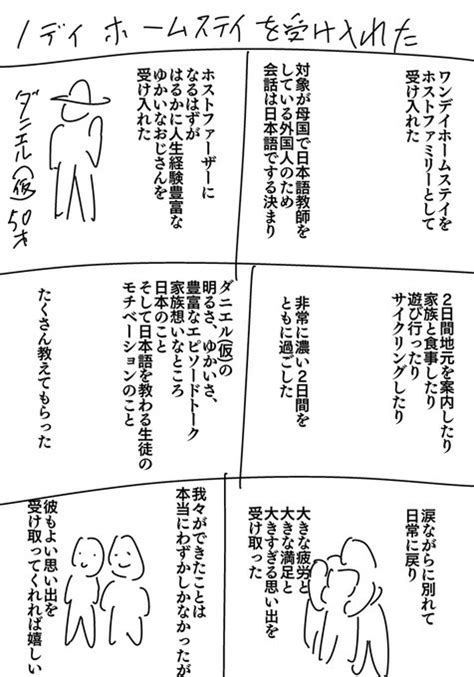 1デイ ホームステイを受け入れた
ワンデイホームステイを
ホストファミリーとして
受け入れた
対象が母国で日本語教師を
している外国人のため
会話は日本語でする決まり
ホストファーザーに
なるはずが
はるかに人生経験豊富な
ゆかいなおじさんを
受け入れた
ダニエル(仮)50才
2日間地元を案内したり
家族と食事したり
遊び行ったり
サイクリングしたり
非常に濃い2日間を
ともに過ごした
ダニエル(仮)の
明るさ、ゆかいさ、
豊富なエピソードトーク
家族想いなところ
日本のこと
そして日本語を教わる生徒の
モチベーションのこと
たくさん教えてもらった
涙ながらに別れて
日常に戻り
大きな疲労と
大きな満足と
大きすぎる思い出を
受け取った
我々ができたことは
本当にわずかしかなかったが
彼もよい思い出を
受け取ってくれれば嬉しい